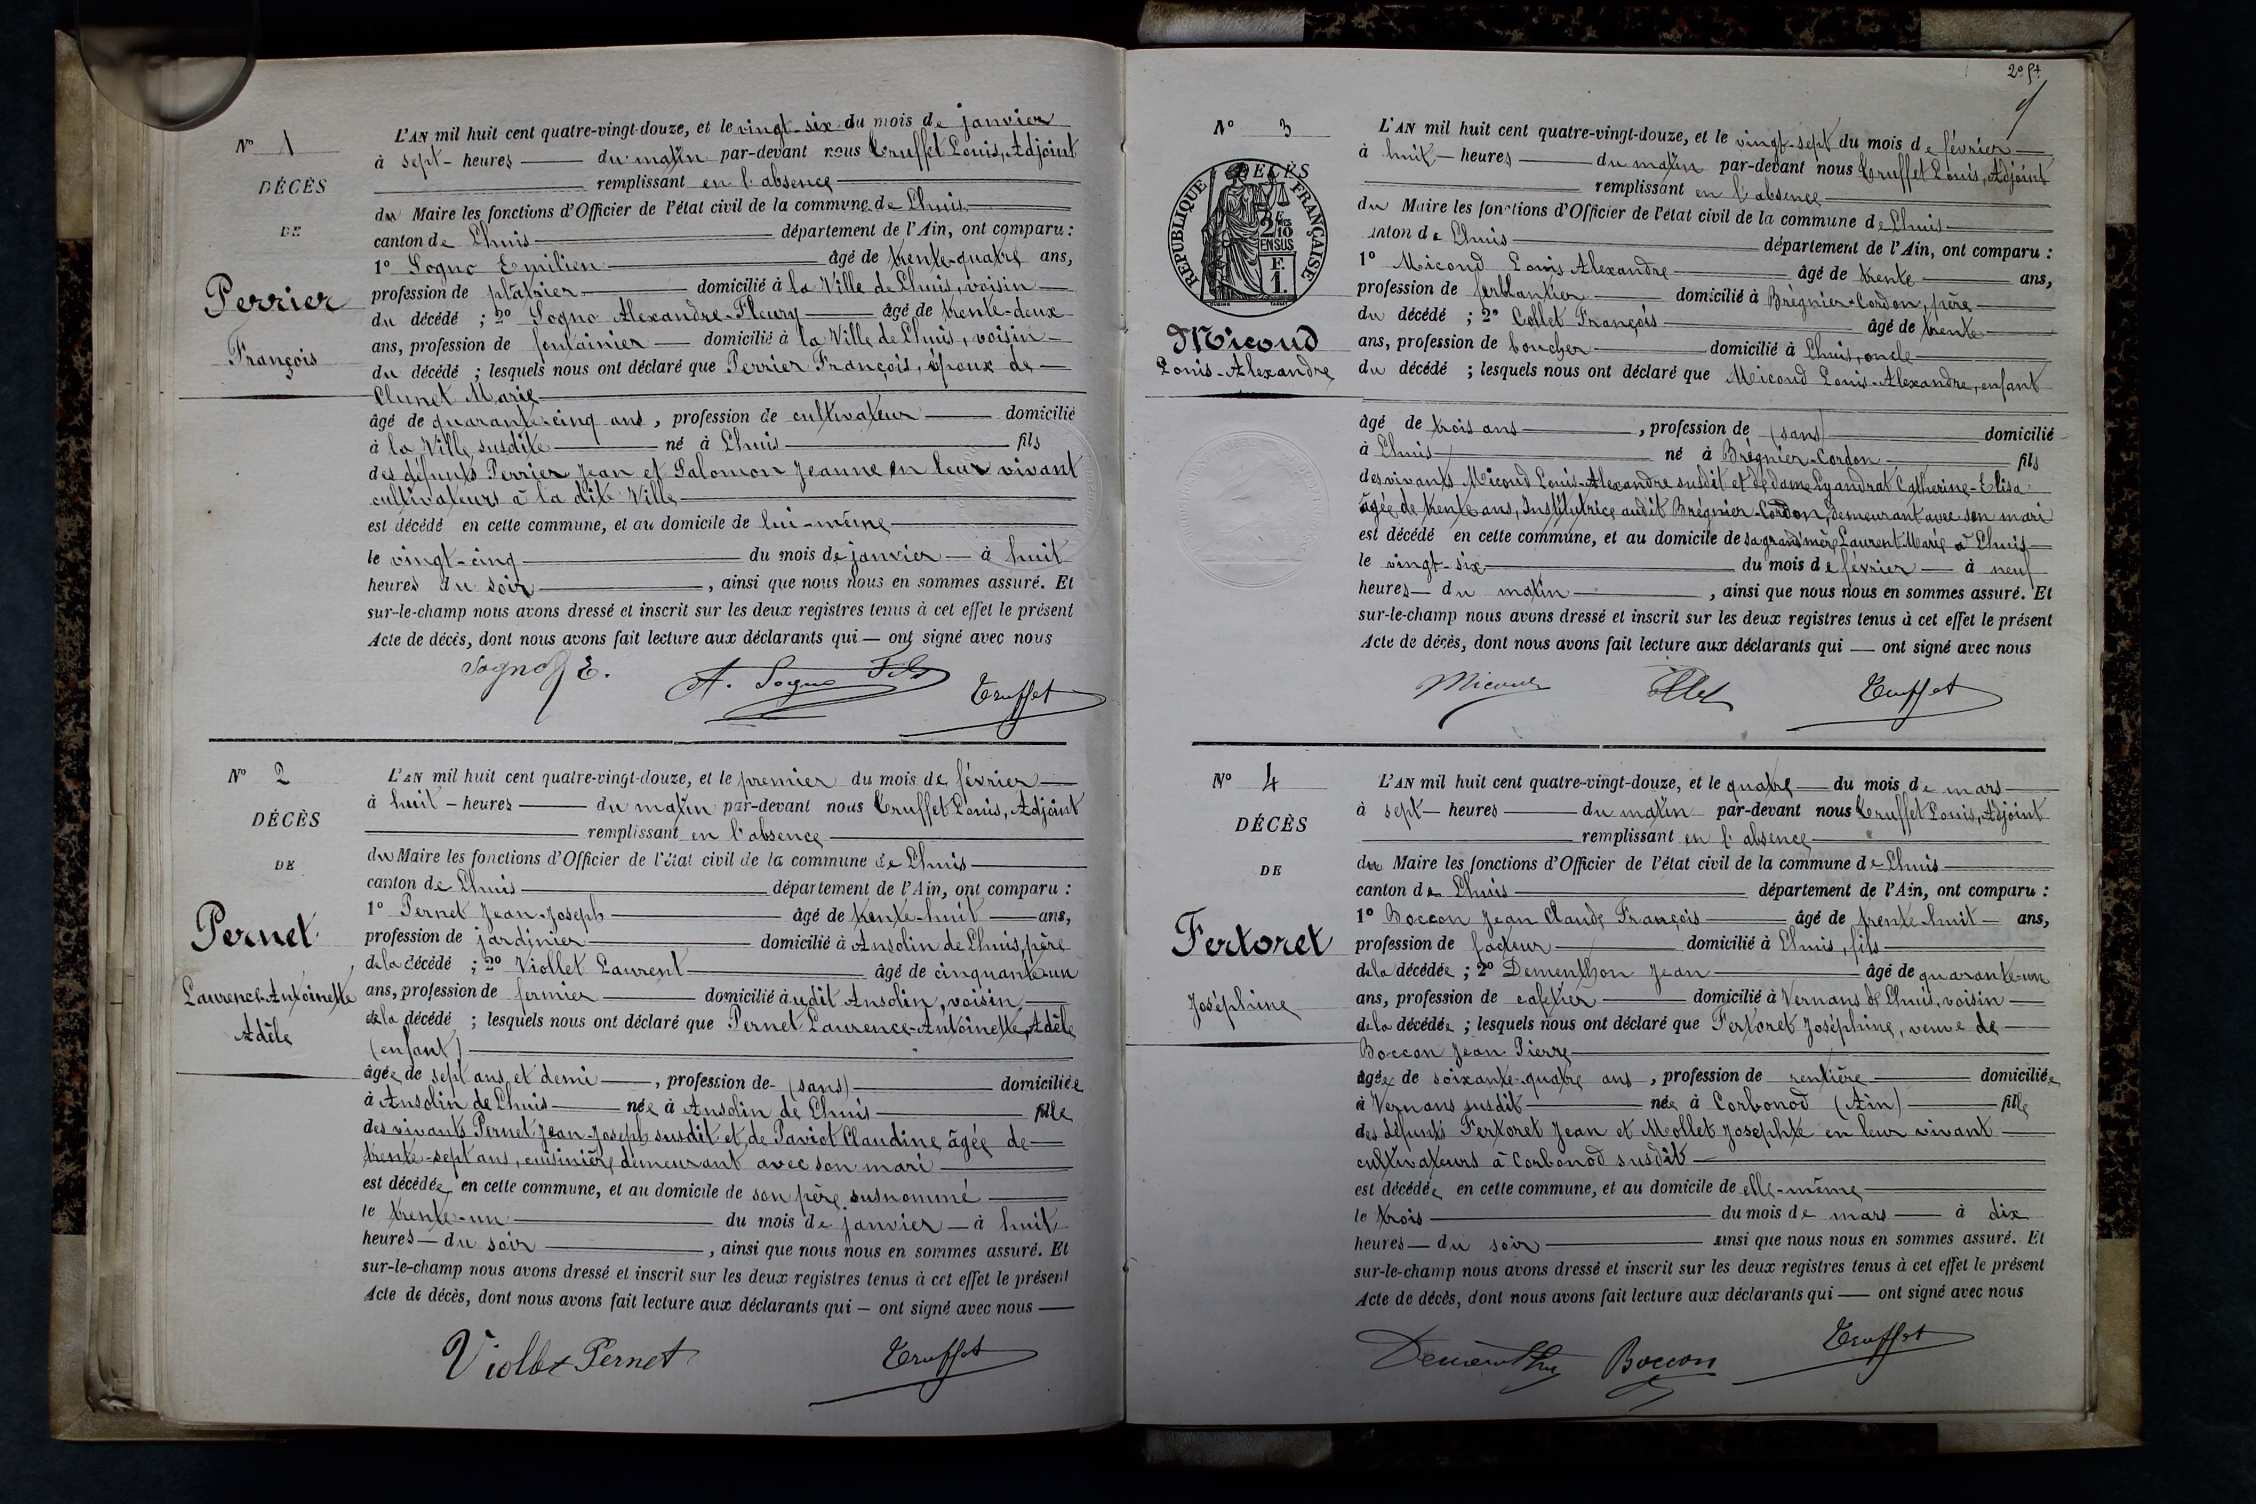 N° 1
DÉCÈS
DE
Perrier
François
L'AN mil huit cent quatre-vingt-douze, et le vingt-six du mois de janvier
à sept heures du matin par-devant nous Truffet Louis, Adjoint
remplissant en l'absence
du Maire les fonctions d'Officier de l'état civil de la commune de Lhuis
canton de Lhuis département de l'Ain, ont comparu :
1° Sogno Emilien âgé de trente-quatre ans,
profession de plâtrier domicilié à la Ville de Lhuis, voisin
du décédé ; 2° Sogno Alexandre-Fleury âgé de trente-deux
ans, profession de domicilié à la Ville de Lhuis, voisin
du décédé ; lesquels nous ont déclaré que Perrier François, époux de
Clunet Marie
âgé de quarante-cinq ans, profession de cultivateur domicilié
à la Ville susdite né à Lhuis fils
des défunts Perrier Jean et Salomon Jeanne en leur vivant
cultivateurs à la dite Ville
est décédé en cette commune, et au domicile de lui-même
le vingt-cinq du mois de janvier à huit
heures du soir, ainsi que nous nous en sommes assuré. Et
sur-le-champ nous avons dressé et inscrit sur les deux registres tenus à cet effet le présent
Acte de décès, dont nous avons fait lecture aux déclarants qui — ont signé avec nous
Sogno E. A. Sogno Fils Truffet
N° 2
DÉCÈS
DE
Pernet
Laurence-Antoinette
Adèle
L'AN mil huit cent quatre-vingt-douze, et le premier du mois de février
à huit heures du matin par-devant nous Truffet Louis, Adjoint
remplissant en l'absence
du Maire les fonctions d'Officier de l'état civil de la commune de Lhuis
canton de Lhuis département de l'Ain, ont comparu :
1° Pernet Jean-Joseph âgé de trente-huit ans,
profession de jardinier domicilié à Ansolin de Lhuis, père
de la décédé ; 2° Viollet Laurent âgé de cinquante-un
ans, profession de fermier domicilié à udit Ansolin, voisin
de la décédé ; lesquels nous ont déclaré que Pernet Laurence-Antoinette, Adèle
(enfant)
âgée de sept ans et demi, profession de (sans) domiciliée
à Ansolin de Lhuis née à Ansolin de Lhuis fille
des vivants Pernet Jean-Joseph susdit et de Paviot Claudine âgée de
trente-sept ans, cuisinière demeurant avec son mari
est décédée en cette commune, et au domicile de son père susnommé
le trente-un du mois de janvier à huit
heures du soir, ainsi que nous nous en sommes assuré. Et
sur-le-champ nous avons dressé et inscrit sur les deux registres tenus à cet effet le présent
Acte de décès, dont nous avons fait lecture aux déclarants qui — ont signé avec nous
Viollet Pernet Truffet
N° 3
DÉCÈS
RÉPUBLIQUE FRANÇAISE
2/10 EN SUS
F. 1.
Micoud
Louis-Alexandre
L'AN mil huit cent quatre-vingt-douze, et le vingt-sept du mois de février
à huit heures du matin par-devant nous Truffet Louis, Adjoint
remplissant en l'absence
du Maire les fonctions d'Officier de l'état civil de la commune de Lhuis
canton de Lhuis département de l'Ain, ont comparu :
1° Micoud Louis Alexandre âgé de trente ans,
profession de ferblantier domicilié à Brégnier-Cordon, père
du décédé ; 2° Collet François âgé de trente
ans, profession de boucher domicilié à Lhuis, oncle
du décédé ; lesquels nous ont déclaré que Micoud Louis-Alexandre, enfant
âgé de trois ans, profession de (sans) domicilié
à Lhuis né à Brégnier-Cordon fils
des vivants Micoud Louis-Alexandre susdit et de dame Lyandrat Catherine-Elisa
âgée de trente ans, Institutrice audit Brégnier-Cordon, demeurant avec son mari
est décédé en cette commune, et au domicile de sa grand'mère Laurent Marie à Lhuis
le vingt-six du mois de février à neuf
heures du matin, ainsi que nous nous en sommes assuré. Et
sur-le-champ nous avons dressé et inscrit sur les deux registres tenus à cet effet le présent
Acte de décès, dont nous avons fait lecture aux déclarants qui — ont signé avec nous
Micoud Collet Truffet
N° 4
DÉCÈS
DE
Fertoret
Joséphine
L'AN mil huit cent quatre-vingt-douze, et le quatre du mois de mars
à sept heures du matin par-devant nous Truffet Louis, Adjoint
remplissant en l'absence
du Maire les fonctions d'Officier de l'état civil de la commune de Lhuis
canton de Lhuis département de l'Ain, ont comparu :
1° Boccon Jean Claude François âgé de trente-huit ans,
profession de facteur domicilié à Lhuis, fils
de la décédée ; 2° Dementhon Jean âgé de quarante-un
ans, profession de cafetier domicilié à Vernans de Lhuis, voisin
de la décédée ; lesquels nous ont déclaré que Fertoret Joséphine, veuve de
Boccon Jean Pierre
âgée de soixante-quatre ans, profession de rentière domiciliée
à Vernans susdit née à Corbonod (Ain) fille
des défunts Fertoret Jean et Mollet Josephte en leur vivant
cultivateurs à Corbonod susdit
est décédée en cette commune, et au domicile de elle-même
le trois du mois de mars à dix
heures du soir ainsi que nous nous en sommes assuré. Et
sur-le-champ nous avons dressé et inscrit sur les deux registres tenus à cet effet le présent
Acte de décès, dont nous avons fait lecture aux déclarants qui — ont signé avec nous
Dementhon Boccon Truffet